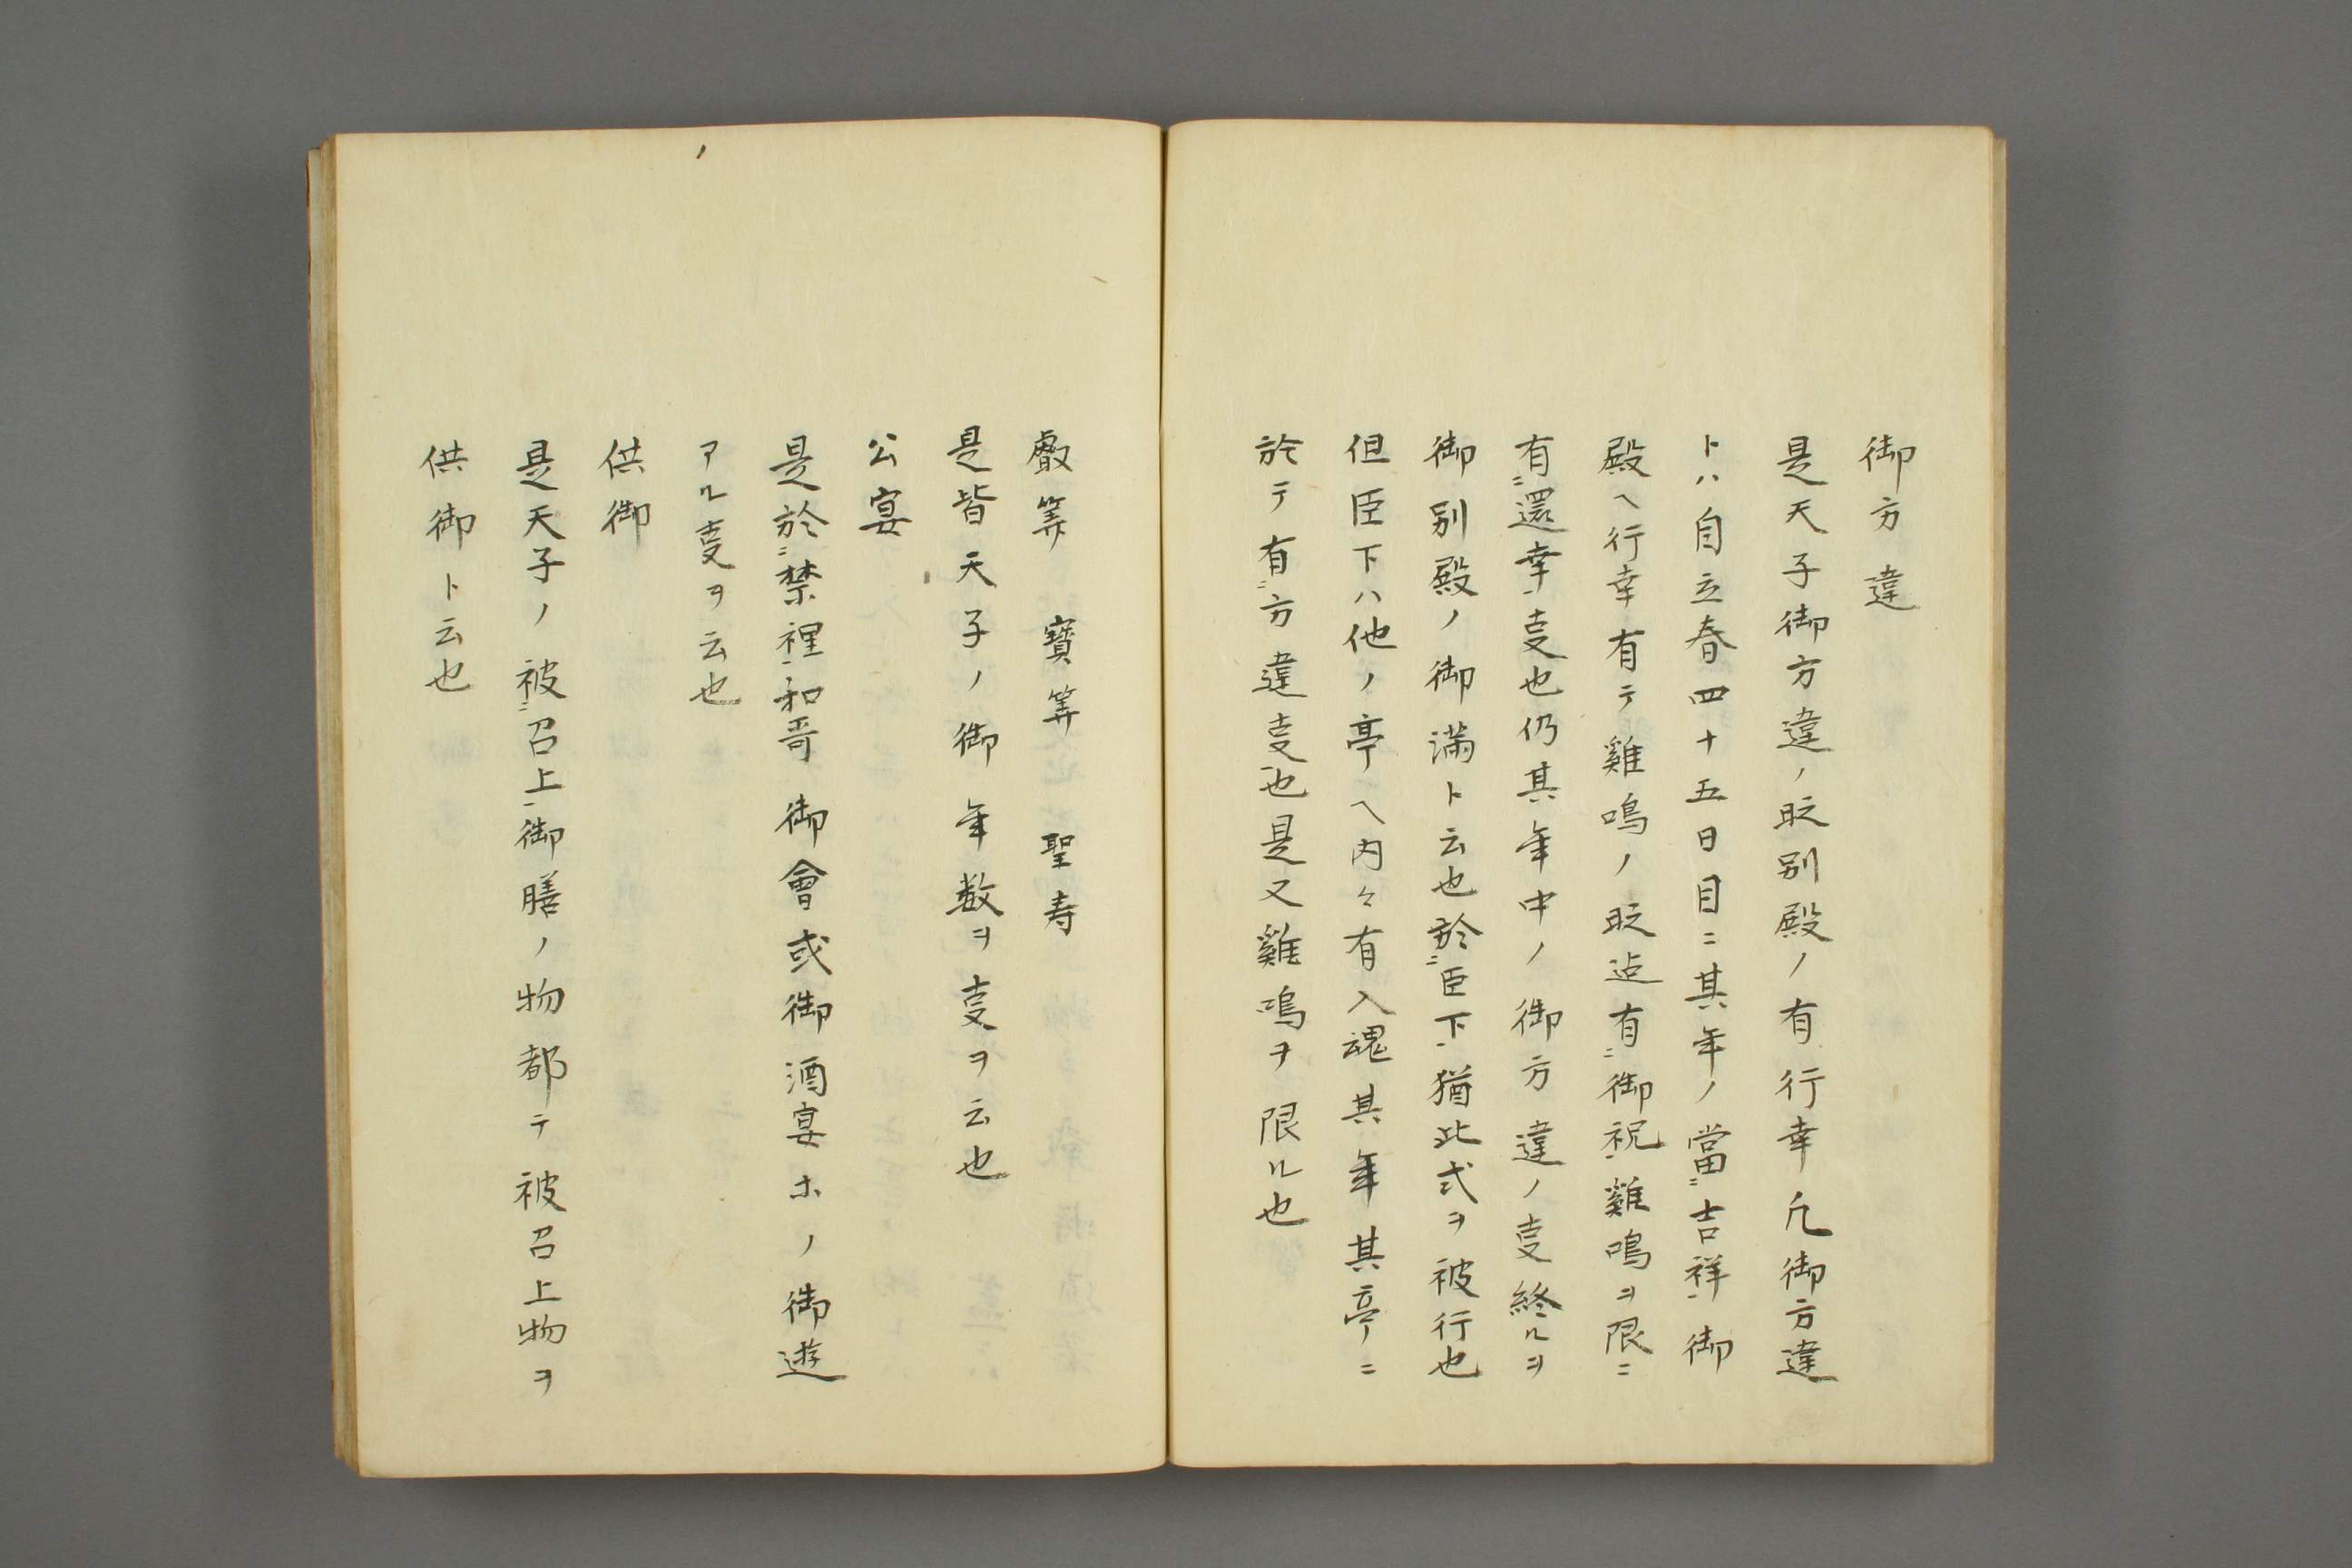 御方違
是天子御方違ノ時別殿ノ有行幸凡御方違
トハ自立春四十五日目ニ其年ノ當ニ吉祥御
殿ヘ行幸有テ雞鳴ノ時迠有ニ御祝雞鳴ヲ限ニ
有ニ還幸叓也仍其年中ノ御方違ノ叓終ルヲ
御別殿ノ御滿ト云也於ニ臣下猶此式ヲ被行也
但臣下ハ他ノ亭ヘ内々有入魂其年其亭ニ
於テ有ニ方違叓也是又雞鳴ヲ限ル也
叡筭 寶筭 聖寿
是皆天子ノ御年数ヲ叓ヲ云也
公宴
是於ニ禁裡和哥御會或御酒宴ホノ御遊
アル叓ヲ云也
供御
是天子ノ被ニ召上御膳ノ物都テ被召上物ヲ
供御ト云也